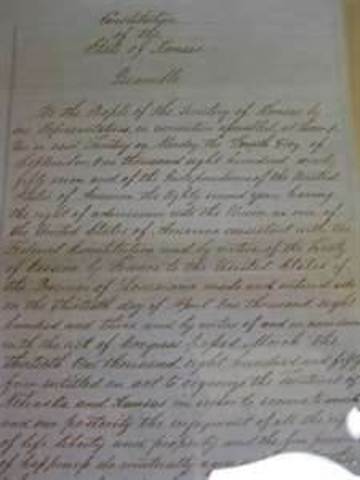 Constitution
of the
State of Kansas
Preamble
We the People of the Territory of Kansas by
our Representatives in convention assembled, at
in said Territory on Monday the Fourth day of
September One thousand eight hundred and
fifty seven and of the Independence of the United
States of America the Eighty second year, having
the right of admission into the Union as one of
the United States of America consistent with the
Federal Constitution and by virtue of the Treaty
of Cession by France to the United States of
the Province of Louisiana made and entered into
on the Thirtieth day of April One thousand eight
hundred and three and by virtue of and in accordance
with the act of Congress Passed March the
Thirtieth One thousand eight hundred and fifty
four entitled an act to organize the territories of
Nebraska and Kansas in order to secure to
and our posterity the enjoyment of all the rights
of life liberty and property and the free pursuit
of happiness do mutually agree